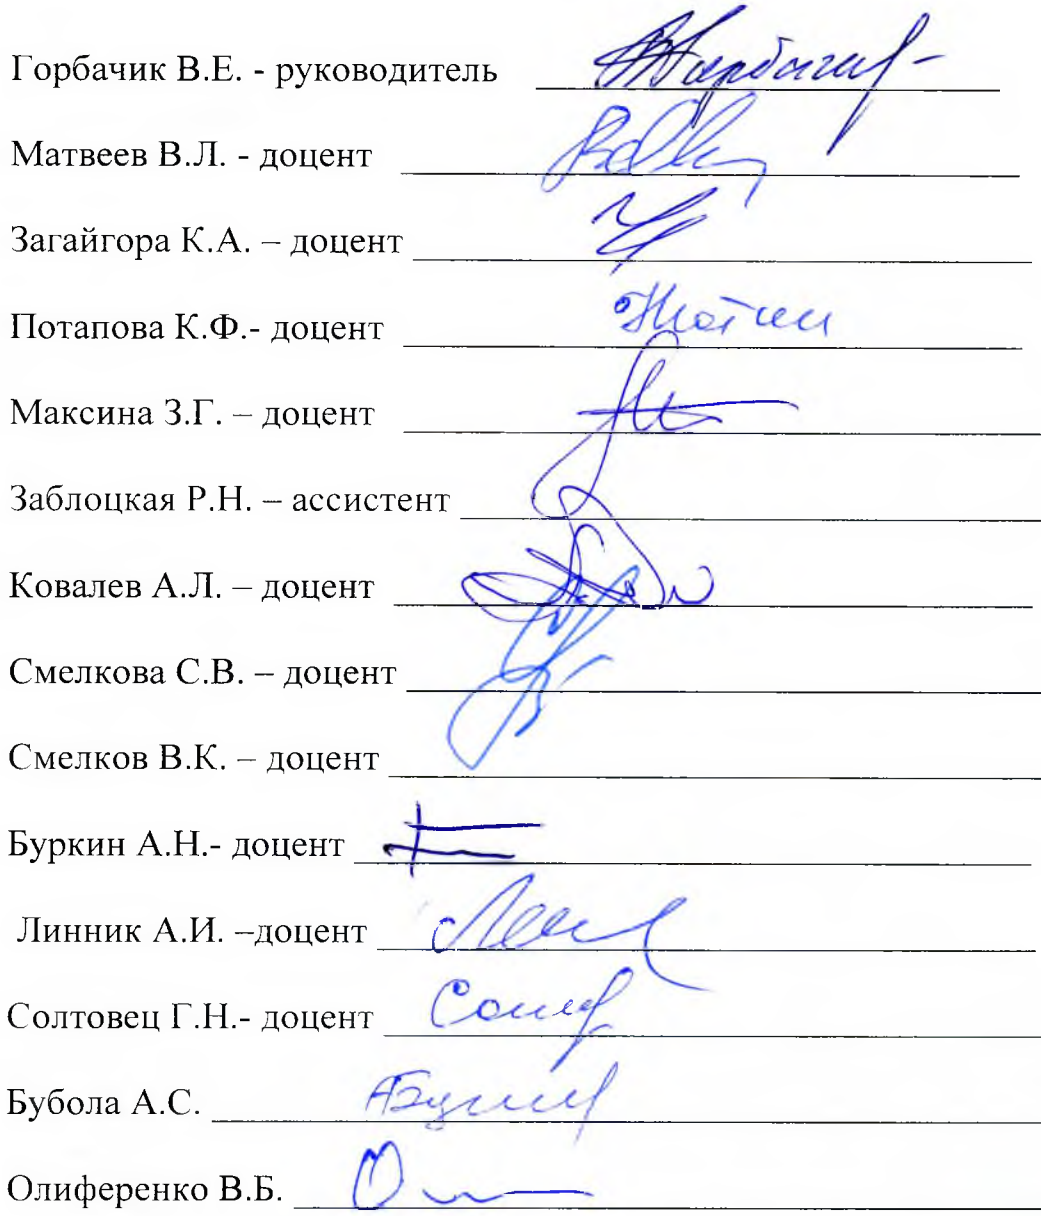 Горбачик В.Е. - руководитель
Матвеев В.Л. - доцент
Загайгора К.А. – доцент
Потапова К.Ф.- доцент
Максина З.Г. – доцент
Заблоцкая Р.Н. – ассистент
Ковалев А.Л. – доцент
Смелкова С.В. – доцент
Смелков В.К. – доцент
Буркин А.Н.- доцент
Линник А.И. –доцент
Солтовец Г.Н.- доцент
Бубола А.С.
Олиференко В.Б.